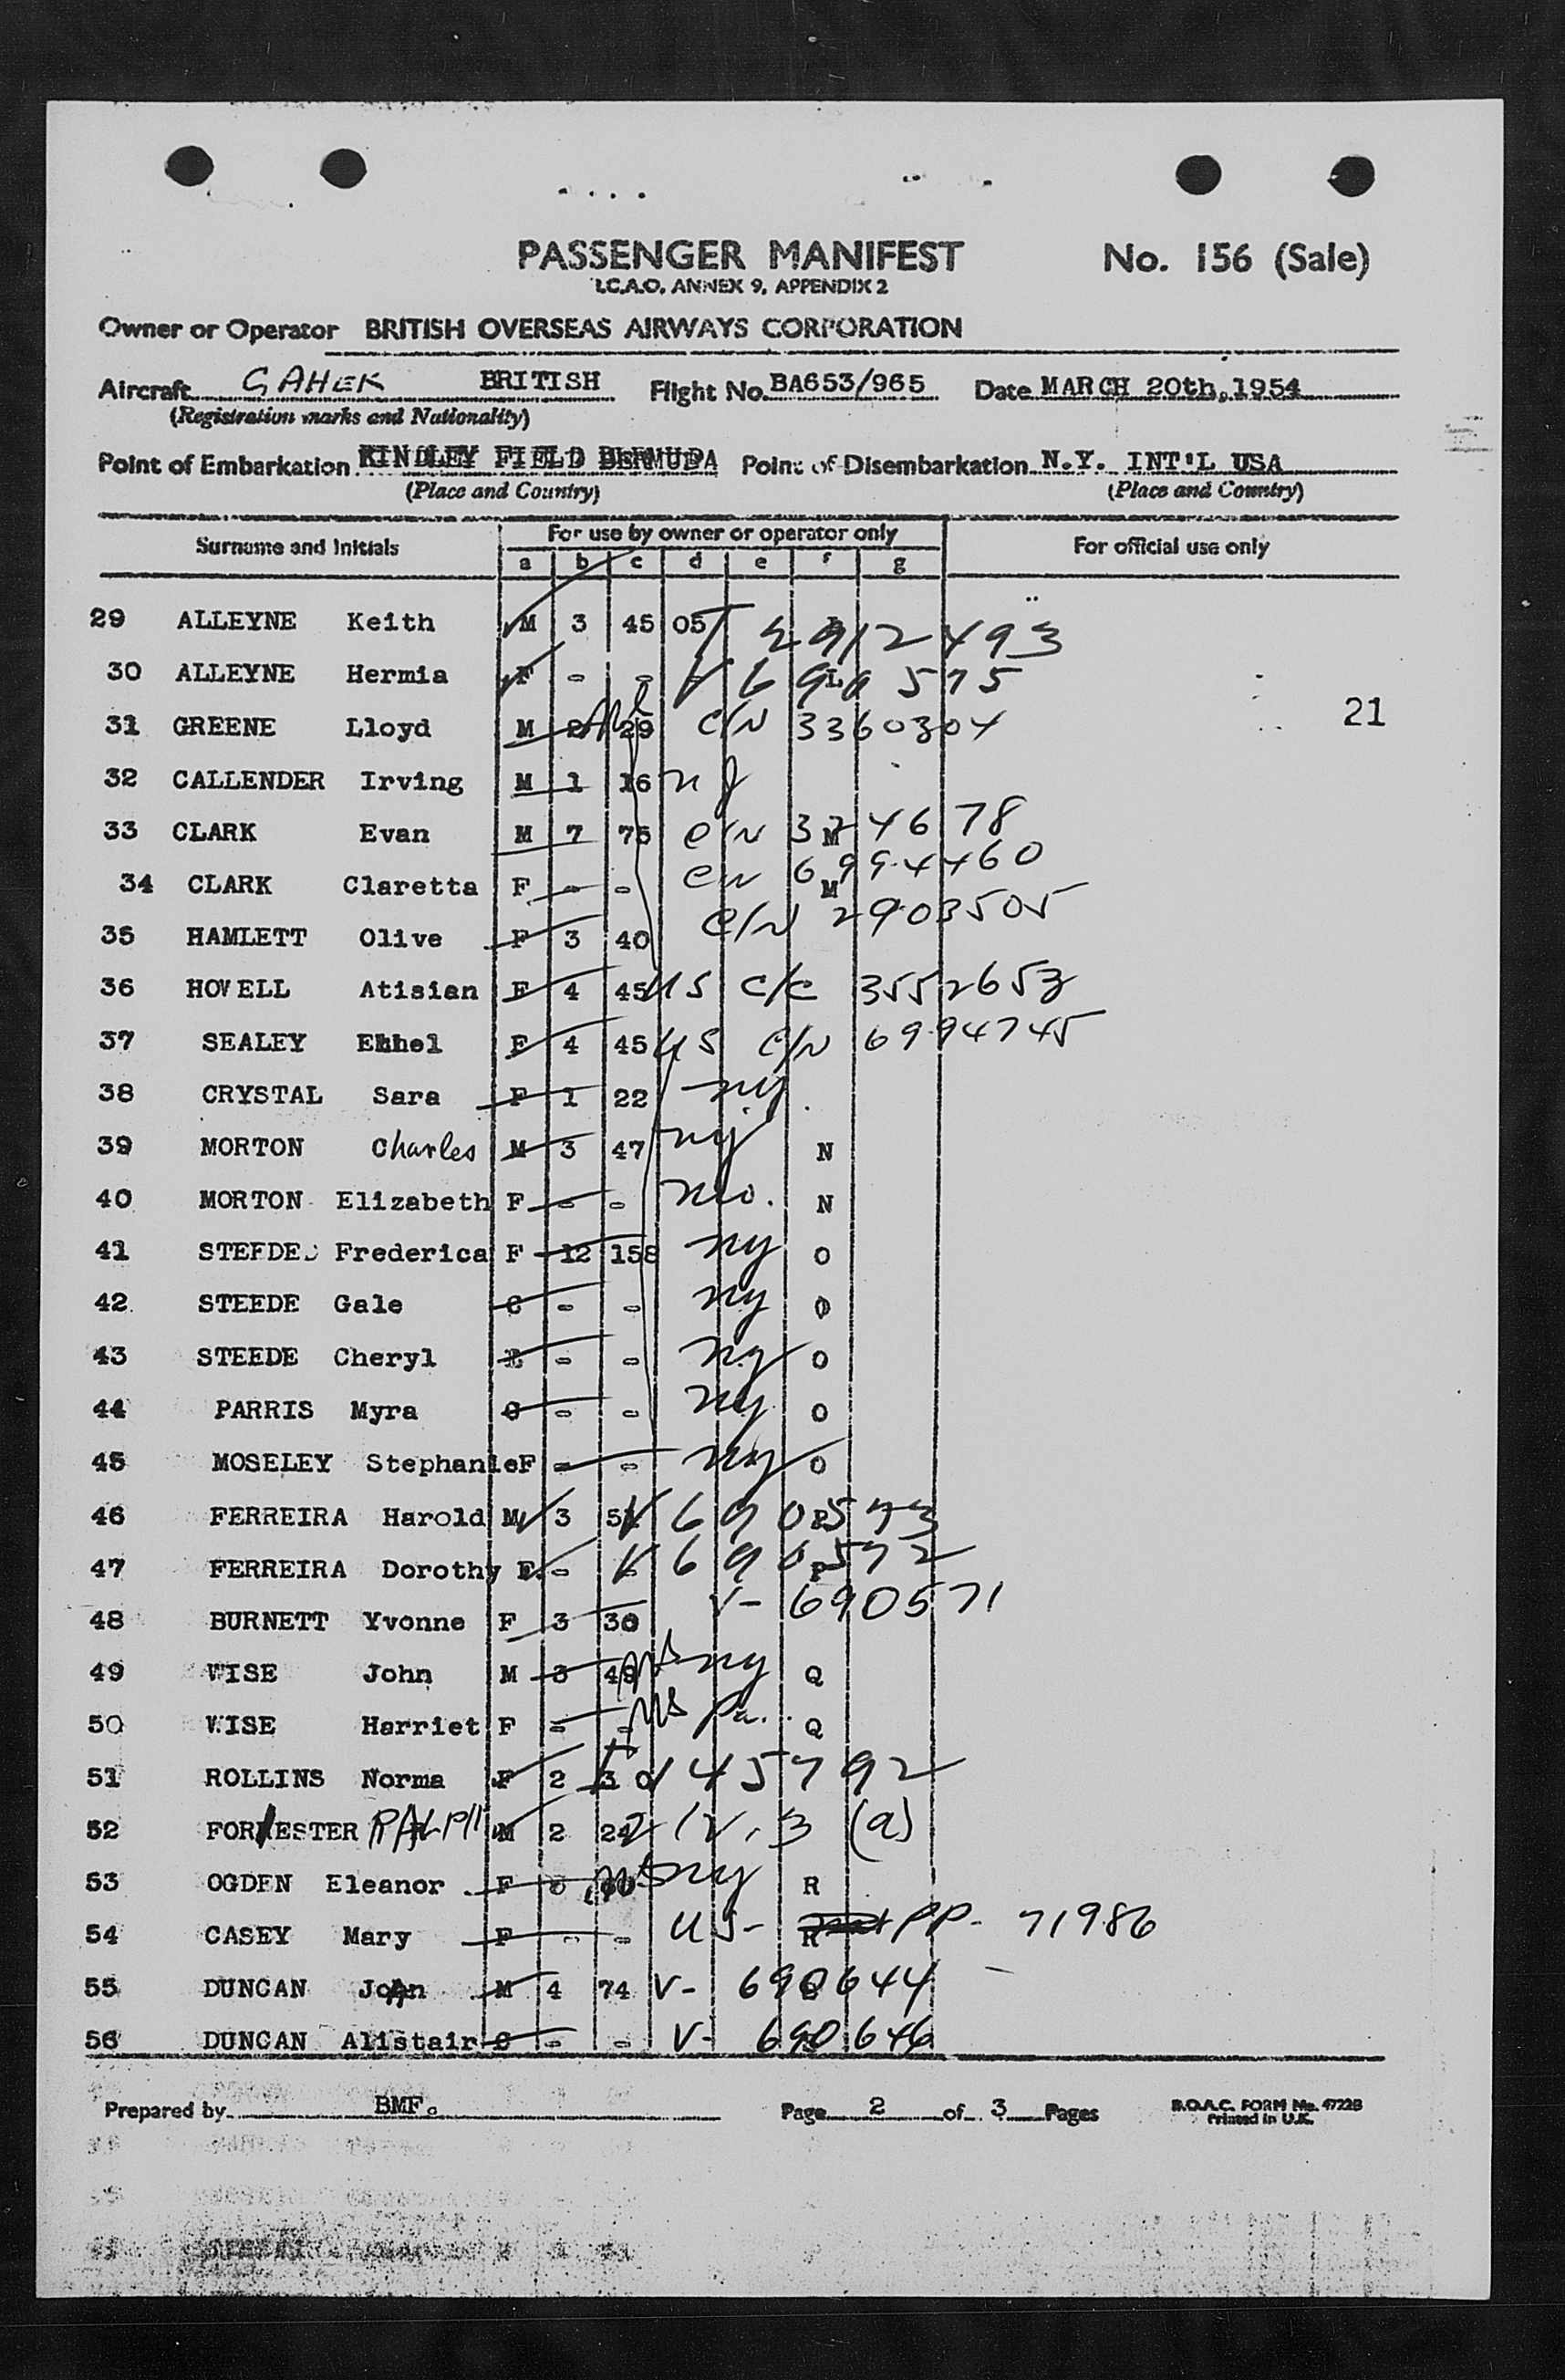 PASSENGER MANIFEST No. 156 (Sale)
I.C.A.O. ANNEX 9, APPENDIX 2
Owner or Operator BRITISH OVERSEAS AIRWAYS CORPORATION
Aircraft GAHEK BRITISH Flight No. BA653/965 Date MARCH 20th, 1954
(Registration marks and Nationality)
Point of Embarkation KINDLEY FIELD BERMUDA Point of Disembarkation N.Y. INT'L USA
(Place and Country) (Place and Country)
Surname and Initials For use by owner or operator only For official use only
a b c d e f g
29 ALLEYNE Keith M 3 45 05
30 ALLEYNE Hermia F - - V 690575 L
21
31 GREENE Lloyd M 2 29 C/N 3360304
32 CALLENDER Irving M 1 16 nj
33 CLARK Evan M 7 75 C/N 3246178 M
34 CLARK Claretta F - - CN 6994460 M
35 HAMLETT Olive F 3 40 C/N 2903505
36 HOVELL Atisian F 4 45 US C/C 3552653
37 SEALEY Ethel F 4 45 US C/N 6994745
38 CRYSTAL Sara F 1 22 ny
39 MORTON Charles M 3 47 ny N
40 MORTON Elizabeth F - - mo. N
41 STEEDE Frederica F 12 158 ny O
42 STEEDE Gale C - - ny O
43 STEEDE Cheryl - - ny O
44 PARRIS Myra C - - ny O
45 MOSELEY Stephanie F - - ny O
46 FERREIRA Harold M 3 V 690573 P
47 FERREIRA Dorothy F - - V 690572 P
48 BURNETT Yvonne F 3 30 V- 690571
49 WISE John M 3 49 US ny Q
50 WISE Harriet F - - US Pa. Q
51 ROLLINS Norma F 2 30 V 145792
52 FORRESTER RALPH M 2 212.3 (a)
53 OGDEN Eleanor F 60 US ny R
54 CASEY Mary F - - US- PP- 71986 R
55 DUNCAN Joan M 4 74 V- 690644
56 DUNCAN Alistair C - - V- 690646
Prepared by BMF. Page 2 of 3 Pages B.O.A.C. FORM No. 4722B
Printed in U.K.